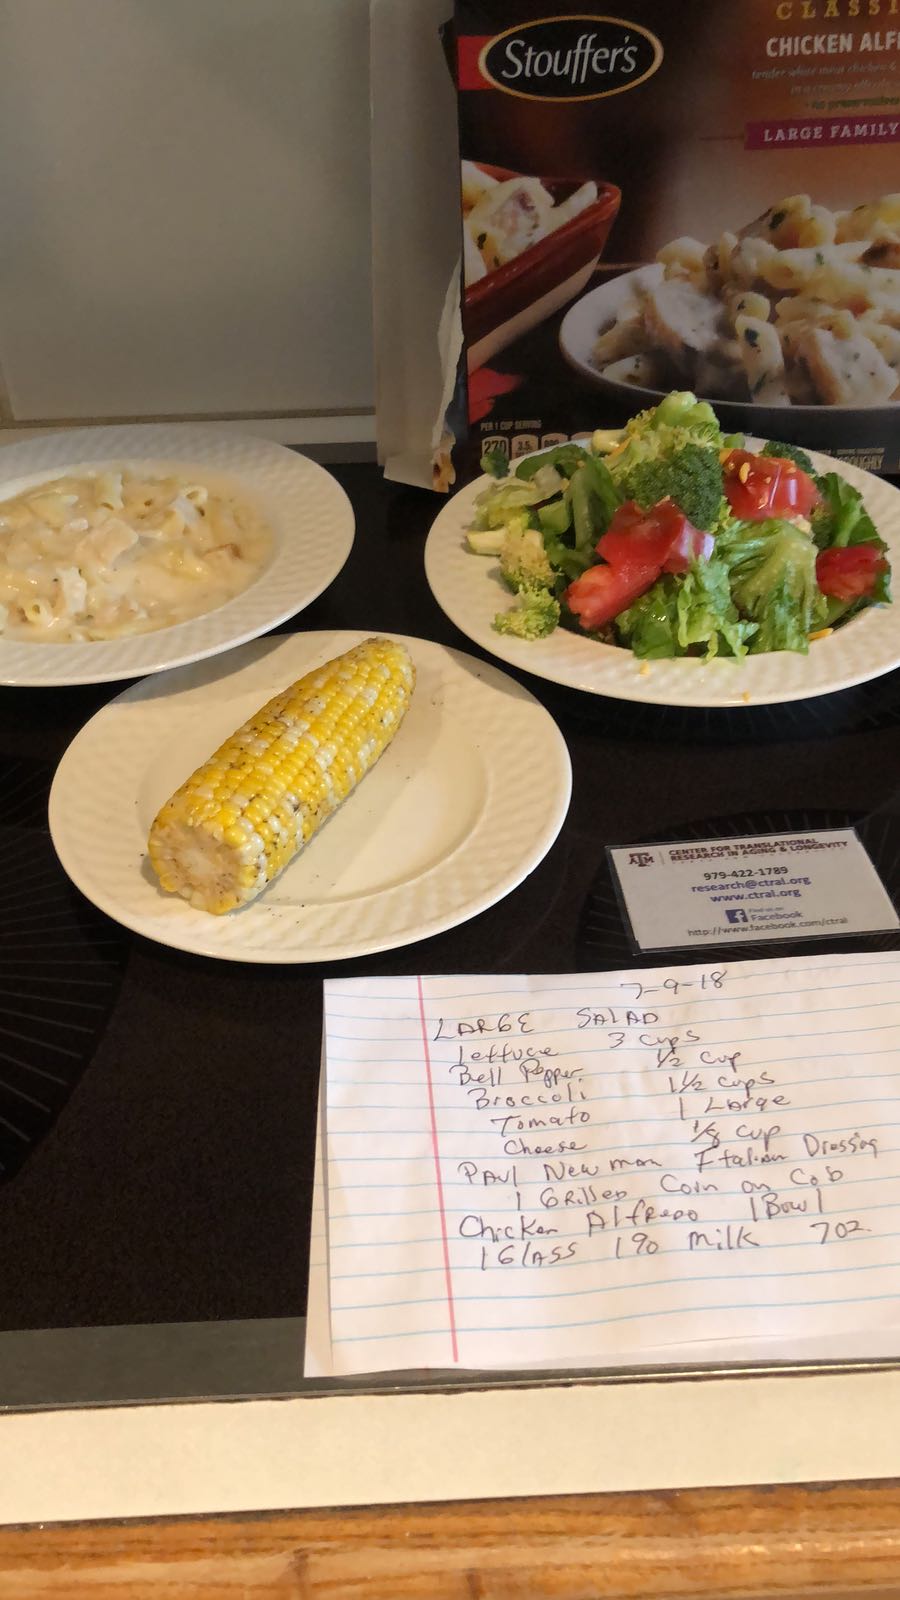 CLASSI
Stouffer's
CHICKEN ALF
tender white meat chicken &
in a creamy alfredo
no preservatives
LARGE FAMILY
PER 1 CUP SERVING
270 3.5
OROUGHLY
ATM CENTER FOR TRANSLATIONAL
RESEARCH IN AGING & LONGEVITY
979-422-1789
research@ctral.org
www.ctral.org
f Find us on
Facebook
http://www.facebook.com/ctral
7-9-18
LARGE SALAD
lettuce 3 cups
Bell Pepper 1/2 cup
Broccoli 1 1/2 cups
Tomato 1 Large
Cheese 1/8 cup
PAUL Newman Italian Dressing
1 GRilled Corn on Cob
Chicken Alfredo 1 Bowl
1 GlASS 1% milk 7oz.